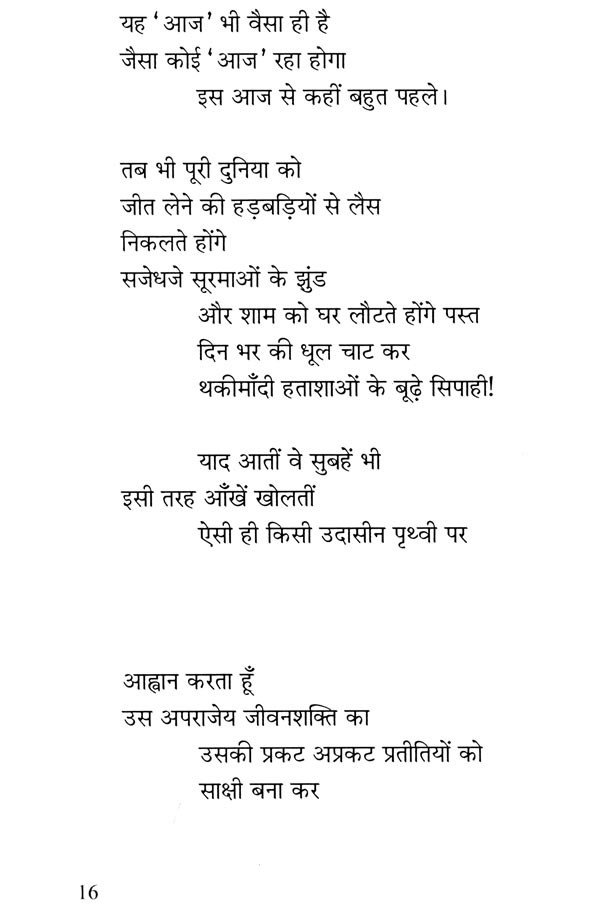 यह ‘आज’ भी वैसा ही है
जैसा कोई ‘आज’ रहा होगा
इस आज से कहीं बहुत पहले।
तब भी पूरी दुनिया को
जीत लेने की हड़बड़ियों से लैस
निकलते होंगे
सजेधजे सूरमाओं के झुंड
और शाम को घर लौटते होंगे पस्त
दिन भर की धूल चाट कर
थकीमाँदी हताशाओं के बूढ़े सिपाही!
याद आतीं वे सुबहें भी
इसी तरह आँखें खोलतीं
ऐसी ही किसी उदासीन पृथ्वी पर
आह्वान करता हूँ
उस अपराजेय जीवनशक्ति का
उसकी प्रकट अप्रकट प्रतीतियों को
साक्षी बना कर
16